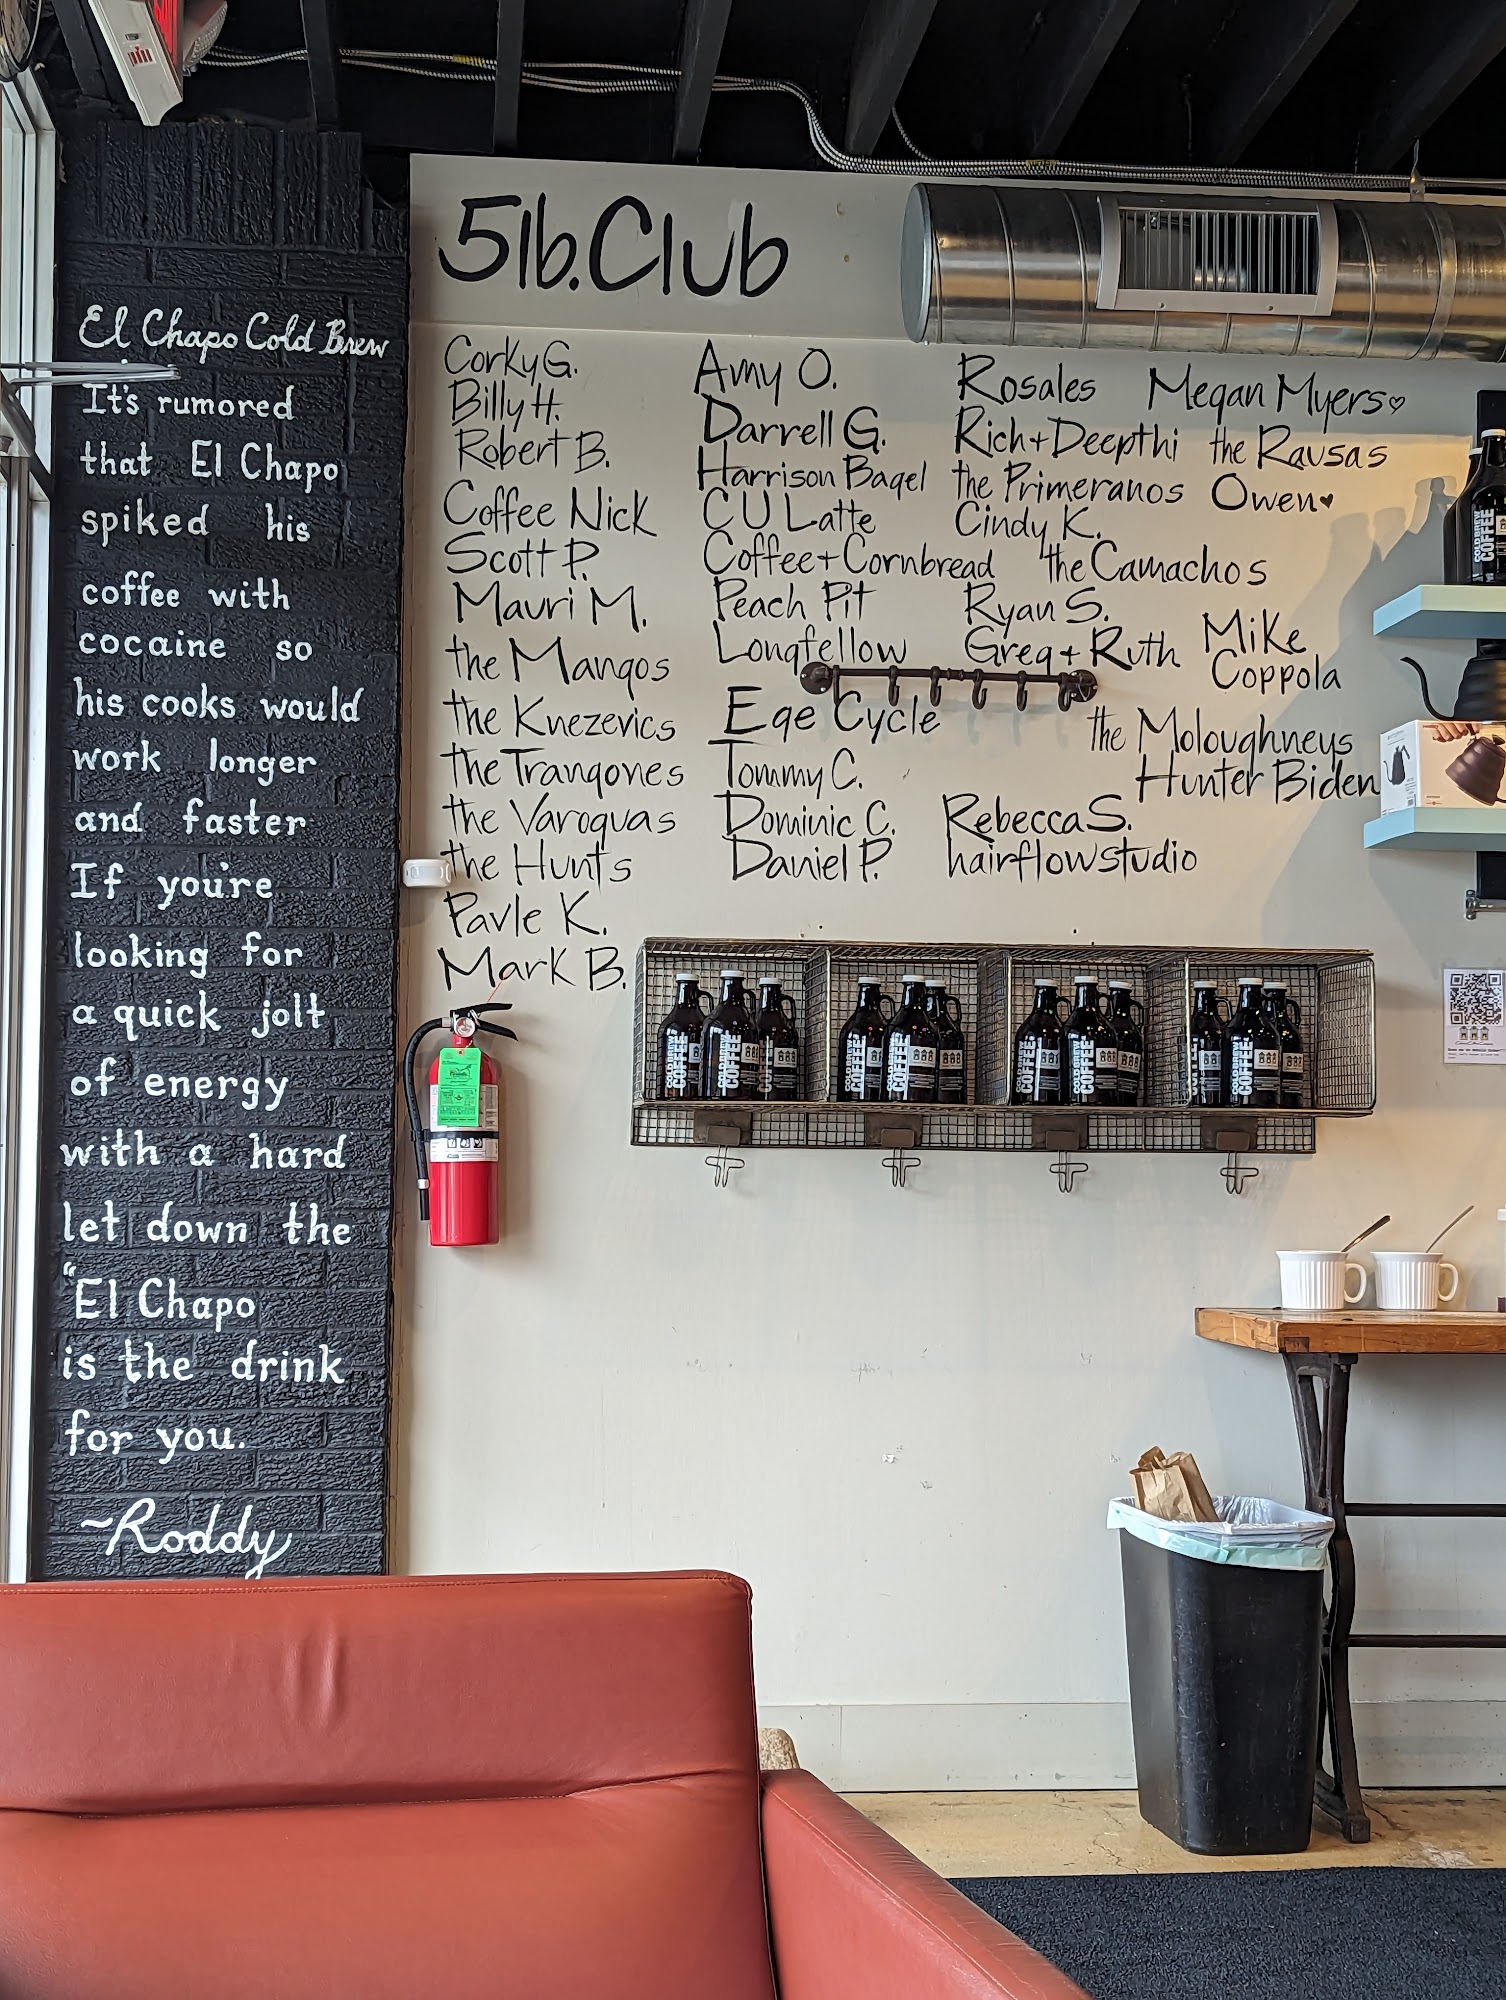 El Chapo Cold Brew
It's rumored
that El Chapo
spiked his
coffee with
cocaine so
his cooks would
work longer
and faster
If you're
looking for
a quick jolt
of energy
with a hard
let down the
"El Chapo
is the drink
for you.
~Roddy
5lb. Club
Corky G.
Billy H.
Robert B.
Coffee Nick
Scott P.
Mauri M.
the Mangos
the Knezevics
the Trangones
the Varoquas
the Hunts
Pavle K.
Mark B.
Amy O.
Darrell G.
Harrison Bagel
CU Latte
Coffee + Cornbread
Peach Pit
Longfellow
Ege Cycle
Tommy C.
Dominic C.
Daniel P.
Rosales
Rich + Deepthi
the Primeranos
Cindy K.
the Camachos
Ryan S.
Greg + Ruth
Rebecca S.
hairflowstudio
Megan Myers♡
the Rausas
Owen♥
Mike
Coppola
the Moloughneys
Hunter Biden
COLD BREW
COFFEE
COLD BREW
COFFEE
COLD BREW
COFFEE
COLD BREW
COFFEE
COLD BREW
COFFEE
COLD BREW
COFFEE